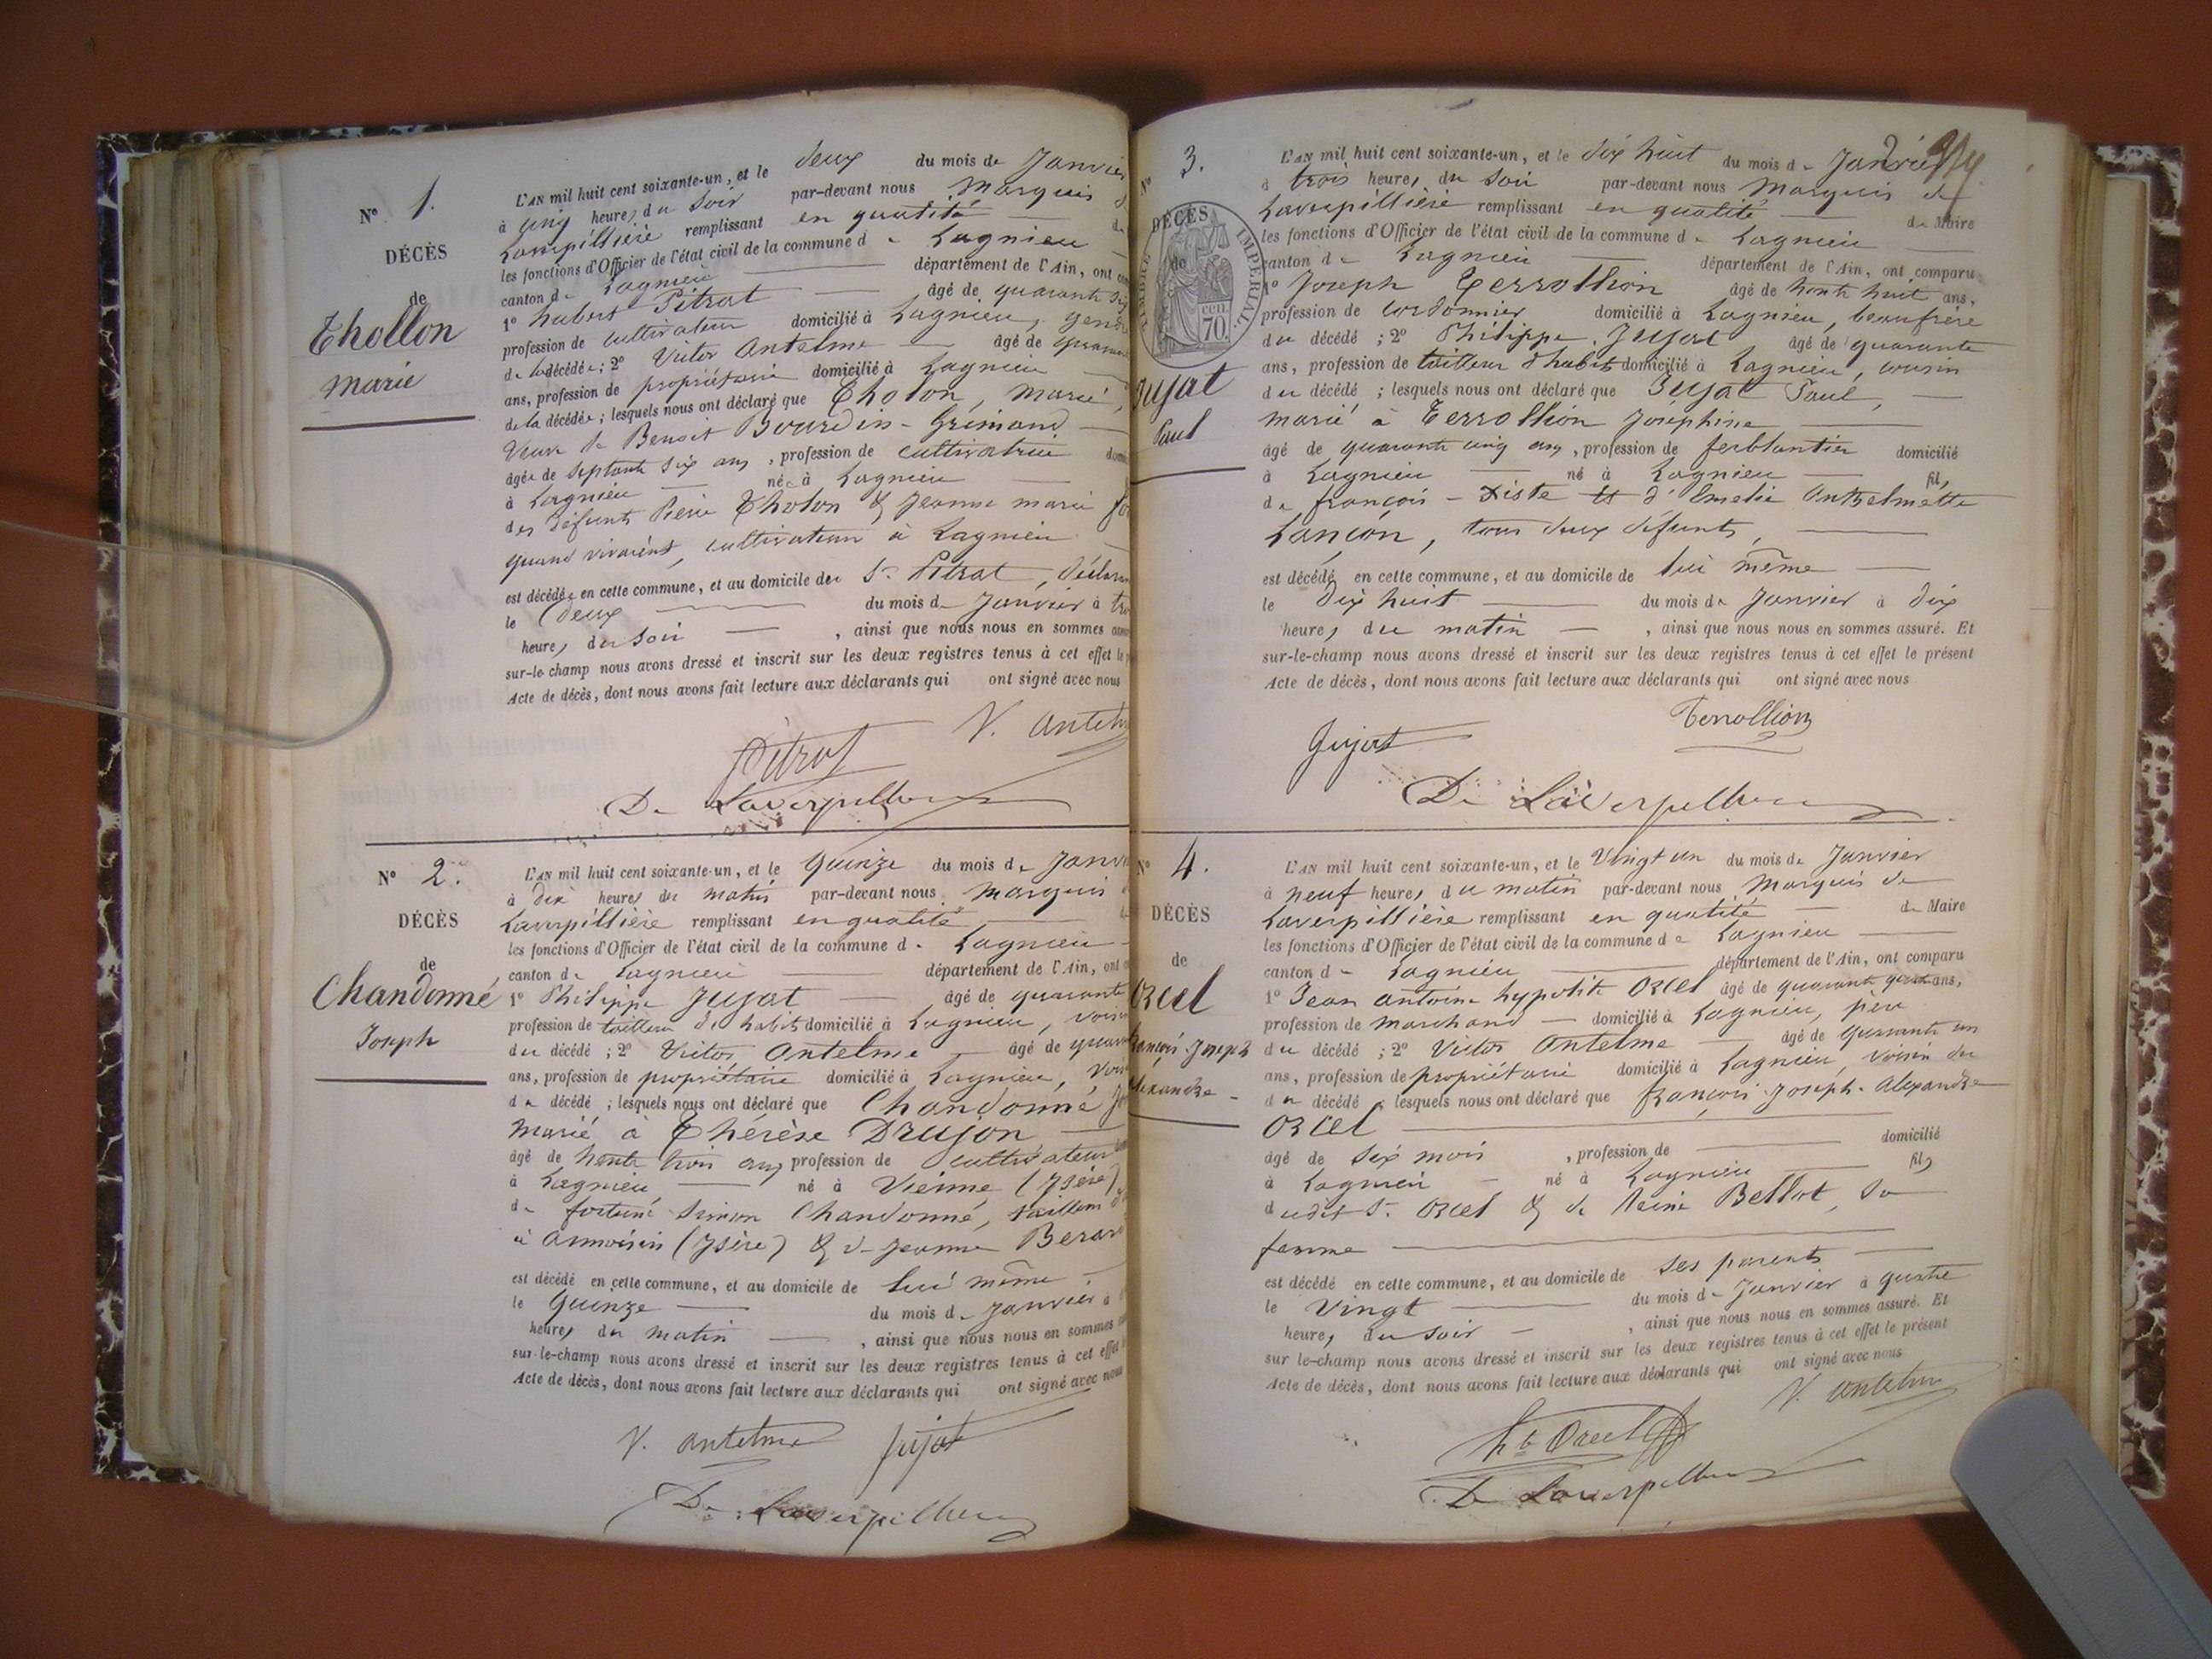 N° 1.
DÉCÈS
de
Thollon
Marie
L'AN mil huit cent soixante-un, et le deux du mois de Janvier
à cinq heures du Soir par-devant nous Marquis
Laverpillière remplissant en qualité
les fonctions d'Officier de l'état civil de la commune de Lagnieu
canton de Lagnieu département de l'Ain, ont
1° hubert Pitrat âgé de quarante
profession de cultivateur domicilié à Lagnieu, gendre
de la décédée; 2° Victor Antelme âgé de
ans, profession de propriétaire domicilié à Lagnieu
de la décédée; lesquels nous ont déclaré que Tholon, Marie,
Veuve de Benoit Bourdin-Grimand
âgée de septante six ans, profession de cultivatrice
à Lagnieu née à Lagnieu
des défunts Pierre Tholon & Jeanne marie
quand vivaient, cultivateurs à Lagnieu
est décédée en cette commune, et au domicile du Sr Pitrat, déclarant
le deux du mois de Janvier à
heures du soir, ainsi que nous nous en sommes
sur-le-champ nous avons dressé et inscrit sur les deux registres tenus à cet effet le
Acte de décès, dont nous avons fait lecture aux déclarants qui ont signé avec nous
V. Antelme
Pitrat
De Laverpilliere
N° 2.
DÉCÈS
de
Chandonné
Joseph
L'AN mil huit cent soixante-un, et le Quinze du mois de Janvier
à dix heures du matin par-devant nous Marquis
Laverpillière remplissant en qualité
les fonctions d'Officier de l'état civil de la commune de Lagnieu
canton de Lagnieu département de l'Ain, ont
1° Philippe Jujat âgé de quarante
profession de tailleur d'habits domicilié à Lagnieu, voisin
du décédé; 2° Victor Antelme âgé de
ans, profession de propriétaire domicilié à Lagnieu,
du décédé; lesquels nous ont déclaré que Chandonné
marié à Thérèse Drujon
âgé de trente trois ans, profession de cultivateur
à Lagnieu né à Vienne (Isère)
de fortuné Simon Chandonné, tailleur
à (Isère) & de Jeanne
est décédé en cette commune, et au domicile de lui même
le Quinze du mois de Janvier à
heures du matin, ainsi que nous nous en sommes
sur-le-champ nous avons dressé et inscrit sur les deux registres tenus à cet effet
Acte de décès, dont nous avons fait lecture aux déclarants qui ont signé avec nous
V. Antelme Jujat
De Laverpilliere
N° 3.
DÉCÈS
de
TIMBRE IMPÉRIAL
70 cen.
Jujat
Paul
L'AN mil huit cent soixante-un, et le dix huit du mois de Janvier
à trois heures du Soir par-devant nous Marquis de
Laverpillière remplissant en qualité de Maire
les fonctions d'Officier de l'état civil de la commune de Lagnieu
canton de Lagnieu département de l'Ain, ont comparu
1° Joseph Terrollion âgé de trente huit ans,
profession de cordonnier domicilié à Lagnieu, beaufrère
du décédé; 2° Philippe Jujat âgé de quarante
ans, profession de tailleur d'habits domicilié à Lagnieu, cousin
du décédé; lesquels nous ont déclaré que Jujat Paul,
marié à Terrollion Joséphine
âgé de quarante cinq ans, profession de ferblantier domicilié
à Lagnieu né à Lagnieu fils
de françois-Xiste et d'Emelie Anthelmette
Lançon, tous deux défunts,
est décédé en cette commune, et au domicile de lui même
le Dix huit du mois de Janvier à dix
heures du matin, ainsi que nous nous en sommes assuré. Et
sur-le-champ nous avons dressé et inscrit sur les deux registres tenus à cet effet le présent
Acte de décès, dont nous avons fait lecture aux déclarants qui ont signé avec nous
Terrollion
Jujat
De Laverpilliere
N° 4.
DÉCÈS
de
Orcel
françois-Joseph
Alexandre
L'AN mil huit cent soixante-un, et le Vingt un du mois de Janvier
à neuf heures du matin par-devant nous Marquis de
Laverpillière remplissant en qualité de Maire
les fonctions d'Officier de l'état civil de la commune de Lagnieu
canton de Lagnieu département de l'Ain, ont comparu
1° Jean Antoine hypolite Orcel âgé de quarante quatre ans,
profession de marchand domicilié à Lagnieu, père
du décédé; 2° Victor Antelme âgé de quarante un
ans, profession de propriétaire domicilié à Lagnieu, voisin du
du décédé; lesquels nous ont déclaré que françois-Joseph-Alexandre
Orcel
âgé de six mois, profession de domicilié
à Lagnieu né à Lagnieu fils
dudit Sr Orcel & de Reine Bellot, sa
femme
est décédé en cette commune, et au domicile de ses parents
le Vingt du mois de Janvier à quatre
heures du soir, ainsi que nous nous en sommes assuré. Et
sur le-champ nous avons dressé et inscrit sur les deux registres tenus à cet effet le présent
Acte de décès, dont nous avons fait lecture aux déclarants qui ont signé avec nous
V. Antelme
hte Orcel
De Laverpilliere